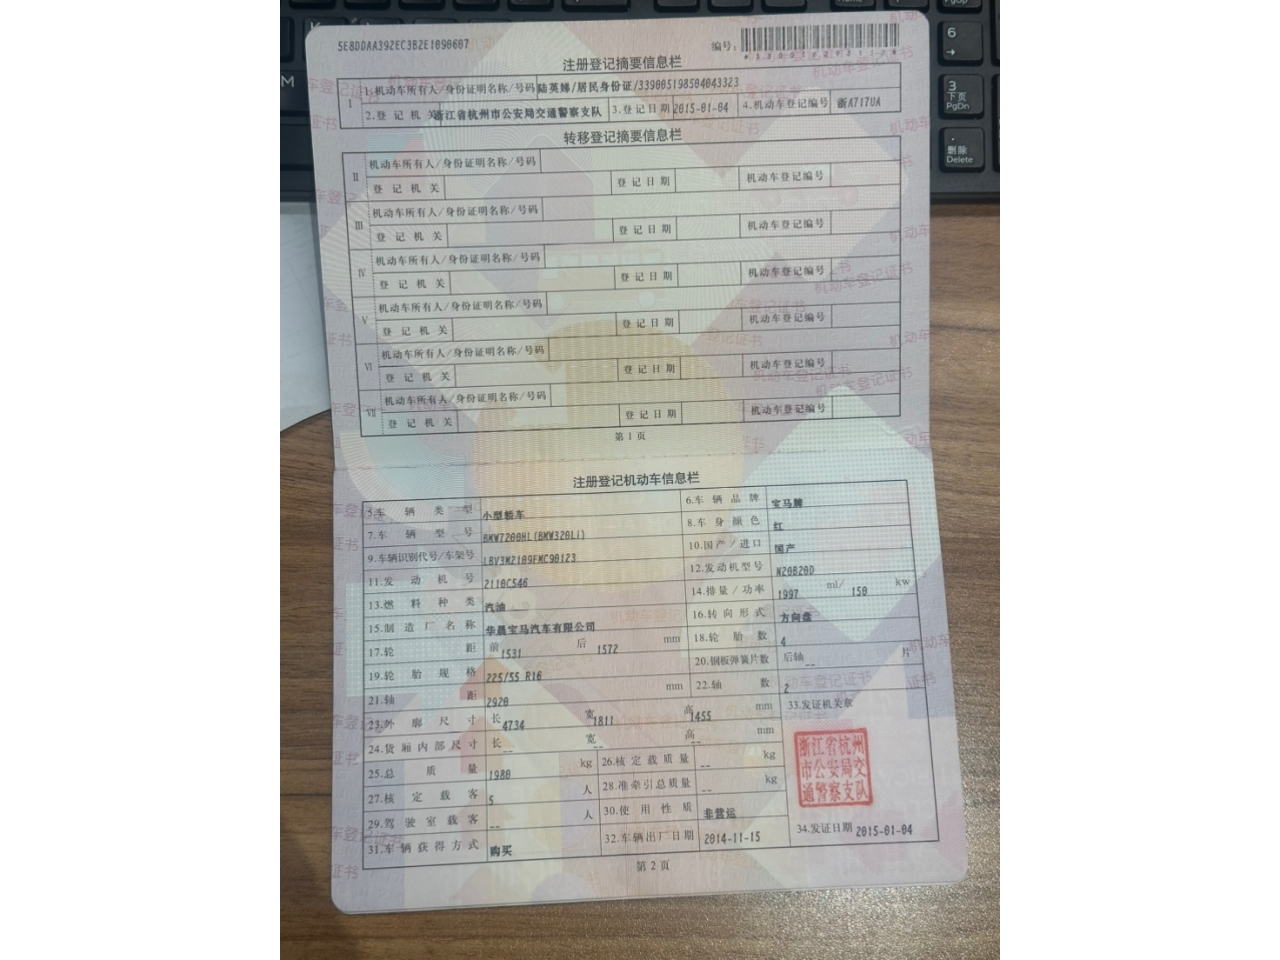 5E8DDAA392EC3B2E1090607
编号:
注册登记摘要信息栏
I 1.机动车所有人/身份证明名称/号码 陆英娣/居民身份证/339005198504043323
2.登记机关 浙江省杭州市公安局交通警察支队 3.登记日期 2015-01-04 4.机动车登记编号 浙A717UA
转移登记摘要信息栏
II 机动车所有人/身份证明名称/号码
登记机关 登记日期 机动车登记编号
III 机动车所有人/身份证明名称/号码
登记机关 登记日期 机动车登记编号
IV 机动车所有人/身份证明名称/号码
登记机关 登记日期 机动车登记编号
V 机动车所有人/身份证明名称/号码
登记机关 登记日期 机动车登记编号
VI 机动车所有人/身份证明名称/号码
登记机关 登记日期 机动车登记编号
VII 机动车所有人/身份证明名称/号码
登记机关 登记日期 机动车登记编号
第1页
注册登记机动车信息栏
5.车辆类型 小型轿车 6.车辆品牌 宝马牌
7.车辆型号 BMW7200HL(BMW320Li) 8.车身颜色 红
9.车辆识别代号/车架号 LBV3M2109FMC90123 10.国产/进口 国产
11.发动机号 2110C546 12.发动机型号 N20B20D
13.燃料种类 汽油 14.排量/功率 1997 ml/ 150 kw
15.制造厂名称 华晨宝马汽车有限公司 16.转向形式 方向盘
17.轮距 前 1531 后 1572 mm 18.轮胎数 4
19.轮胎规格 225/55 R16 20.钢板弹簧片数 后轴 -- 片
21.轴距 2920 mm 22.轴数 2
23.外廓尺寸 长 4734 宽 1811 高 1455 mm 33.发证机关章
24.货厢内部尺寸 长 -- 宽 -- 高 -- mm
25.总质量 1980 kg 26.核定载质量 -- kg
27.核定载客 5 人 28.准牵引总质量 -- kg
29.驾驶室载客 -- 人 30.使用性质 非营运
31.车辆获得方式 购买 32.车辆出厂日期 2014-11-15 34.发证日期 2015-01-04
浙江省杭州
市公安局交
通警察支队
第2页
6
3
下页
PgDn
删除
Delete
M